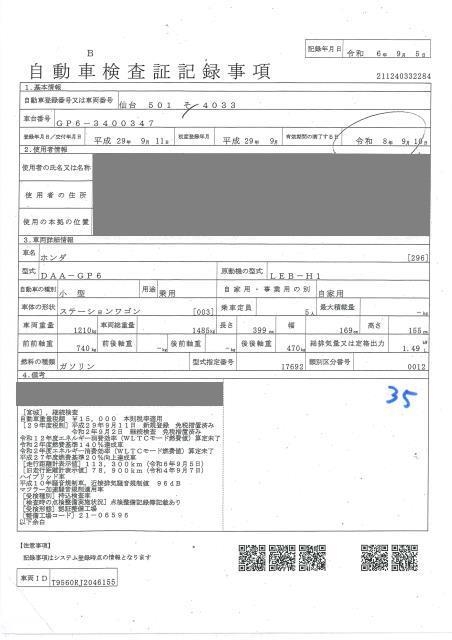 記録年月日 令和 6年 9月 5日
B
自動車検査証記録事項
211240332284
1. 基本情報
自動車登録番号又は車両番号 仙台 501 そ 4033
車台番号 GP6-3400347
登録年月日／交付年月日 平成 29年 9月 11日 初度登録年月 平成 29年 9月 有効期間の満了する日 令和 8年 9月 10日
2. 使用者情報
使用者の氏名又は名称
使用者の住所
使用の本拠の位置
3. 車両詳細情報
車名 ホンダ [296]
型式 DAA-GP6 原動機の型式 LEB-H1
自動車の種別 小型 用途 乗用 自家用・事業用の別 自家用
車体の形状 ステーションワゴン [003] 乗車定員 5人 最大積載量 -kg
車両重量 1210kg 車両総重量 1485kg 長さ 399cm 幅 169cm 高さ 155cm
前前軸重 740kg 前後軸重 -kg 後前軸重 -kg 後後軸重 470kg 総排気量又は定格出力 1.49
燃料の種類 ガソリン 型式指定番号 17692 類別区分番号 0012
4. 備考
35
[宮城]，継続検査
自動車重量税額 ￥15，000 本則税率適用
[29年度税制]平成29年9月11日 新規登録 免税措置済み
令和2年9月2日 継続検査 免税措置済み
令和12年度エネルギー消費効率（WLTCモード燃費値）算定未了
令和2年度燃費基準140％達成車
令和2年度エネルギー消費効率（WLTCモード燃費値）算定未了
平成27年度燃費基準20％向上達成車
[走行距離計表示値]113，300km（令和6年9月5日）
[旧走行距離計表示値]78，900km（令和4年9月7日）
ハイブリッド車
平成10年騒音規制車，近接排気騒音規制値 96dB
マフラー加速騒音規制適用車
[受検種別]持込検査車
[検査時の点検整備実施状況]点検整備記録簿記載あり
[受検形態]認証整備工場
[整備工場コード]21-06596
以下余白
【注意事項】
記録事項はシステム登録時点の情報となります
車両ID T9560RJ2046155